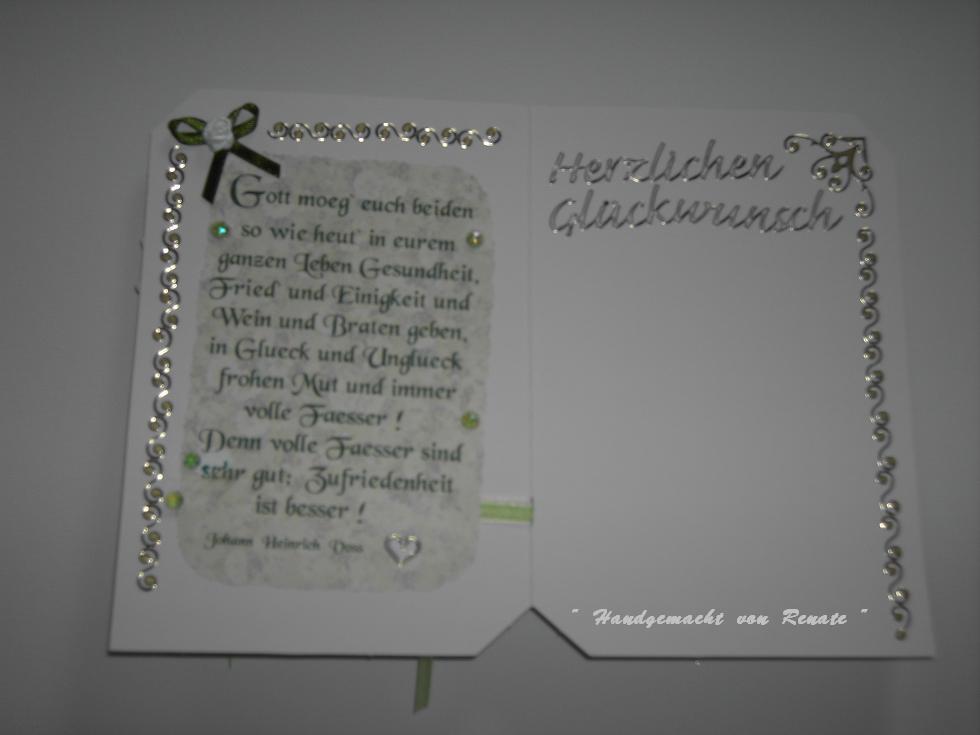 Gott moeg' euch beiden
so wie heut' in eurem
ganzen Leben Gesundheit,
Fried' und Einigkeit und
Wein und Braten geben,
in Glueck und Unglueck
frohen Mut und immer
volle Faesser !
Denn volle Faesser sind
sehr gut; Zufriedenheit
ist besser !
Johann Heinrich Voss
Herzlichen
Glückwunsch
" Handgemacht von Renate "